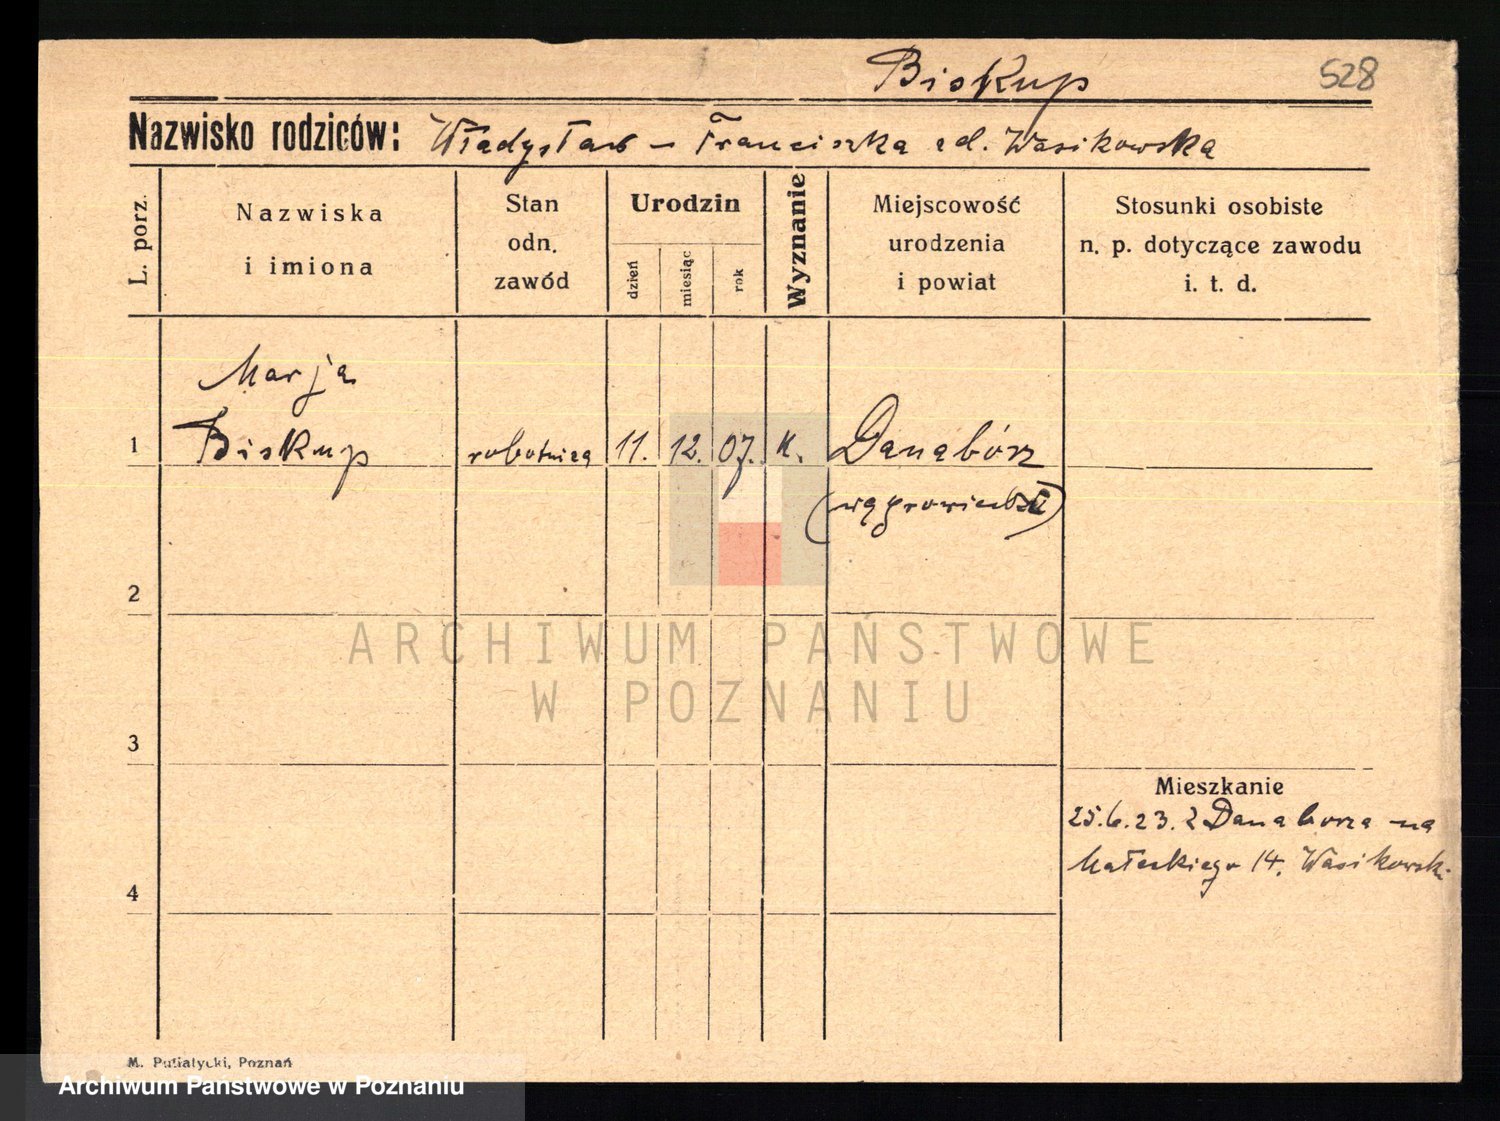 Biskup
528
Nazwisko rodziców: Władysław – Franciszka zd. Wasikowska
L. porz.
Nazwiska
i imiona
Stan
odn.
zawód
Urodzin
dzień
miesiąc
rok
Wyznanie
Miejscowość
urodzenia
i powiat
Stosunki osobiste
n. p. dotyczące zawodu
i. t. d.
Marja
1 Biskup robotnica 11. 12. 07. K. Danabórz
(wągrowiecki)
2
ARCHIWUM PAŃSTWOWE
W POZNANIU
3
Mieszkanie
25.6.23. z Danaborza na
Małeckiego 14. Wasikowski
4
M. Putiatycki, Poznań
Archiwum Państwowe w Poznaniu